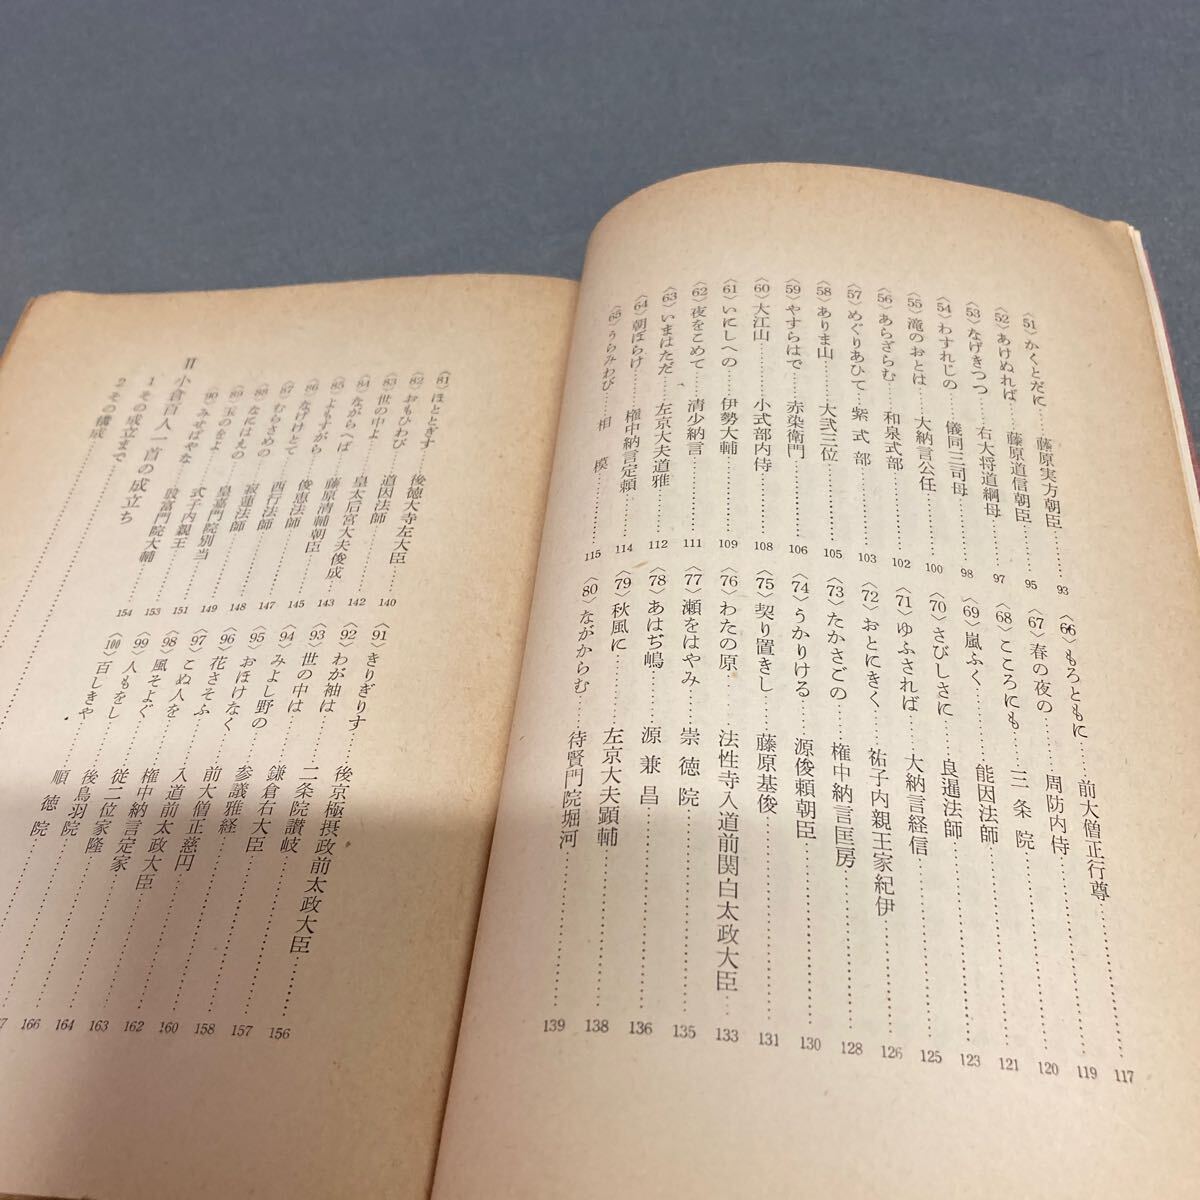 〈51〉かくとだに……藤原実方朝臣……93
〈52〉あけぬれば……藤原道信朝臣……95
〈53〉なげきつつ……右大将道綱母……97
〈54〉わすれじの……儀同三司母……98
〈55〉滝のおとは……大納言公任……100
〈56〉あらざらむ……和泉式部……102
〈57〉めぐりあひて……紫式部……103
〈58〉ありま山……大弐三位……105
〈59〉やすらはで……赤染衛門……106
〈60〉大江山……小式部内侍……108
〈61〉いにしへの……伊勢大輔……109
〈62〉夜をこめて……清少納言……111
〈63〉いまはただ……左京大夫道雅……112
〈64〉朝ぼらけ……権中納言定頼……114
〈65〉うらみわび……相模……115
〈66〉もろともに……前大僧正行尊……117
〈67〉春の夜の……周防内侍……119
〈68〉こころにも……三条院……120
〈69〉嵐ふく……能因法師……121
〈70〉さびしさに……良暹法師……123
〈71〉ゆふされば……大納言経信……125
〈72〉おとにきく……祐子内親王家紀伊……126
〈73〉たかさごの……権中納言匡房……128
〈74〉うかりける……源俊頼朝臣……130
〈75〉契り置きし……藤原基俊……131
〈76〉わたの原……法性寺入道前関白太政大臣……133
〈77〉瀬をはやみ……崇徳院……135
〈78〉あはぢ嶋……源兼昌……136
〈79〉秋風に……左京大夫顕輔……138
〈80〉ながからむ……待賢門院堀河……139
〈81〉ほととぎす……後徳大寺左大臣……140
〈82〉おもひわび……道因法師……142
〈83〉世の中よ……皇太后宮大夫俊成……143
〈84〉ながらへば……藤原清輔朝臣……145
〈85〉よもすがら……俊恵法師……147
〈86〉なげけとて……西行法師……148
〈87〉むらさめの……寂蓮法師……149
〈88〉なにはえの……皇嘉門院別当……151
〈89〉玉のをよ……式子内親王……153
〈90〉みせばやな……殷富門院大輔……154
〈91〉きりぎりす……後京極摂政前太政大臣……156
〈92〉わが袖は……二条院讃岐……157
〈93〉世の中は……鎌倉右大臣……158
〈94〉みよし野の……参議雅経……160
〈95〉おほけなく……前大僧正慈円……162
〈96〉花さそふ……入道前太政大臣……163
〈97〉こぬ人を……権中納言定家……164
〈98〉風そよぐ……従二位家隆……166
〈99〉人もをし……後鳥羽院
〈100〉百しきや……順徳院
II 小倉百人一首の成立ち
1 その成立まで
2 その構成